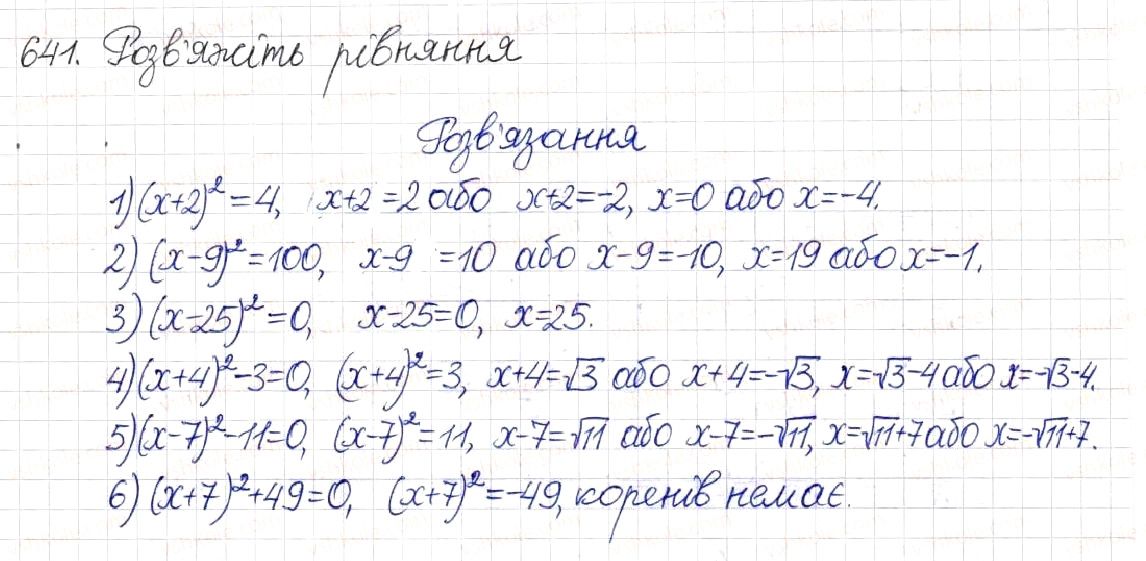 641. Розв'яжіть рівняння
Розв'язання
1) (x+2)² = 4, x+2 = 2 або x+2 = -2, x=0 або x=-4.
2) (x-9)² = 100, x-9 = 10 або x-9 = -10, x=19 або x=-1.
3) (x-25)² = 0, x-25=0, x=25.
4) (x+4)² - 3 = 0, (x+4)² = 3, x+4=√3 або x+4=-√3, x=√3-4 або x=-√3-4.
5) (x-7)² - 11 = 0, (x-7)² = 11, x-7=√11 або x-7=-√11, x=√11+7 або x=-√11+7.
6) (x+7)² + 49 = 0, (x+7)² = -49, коренів немає.